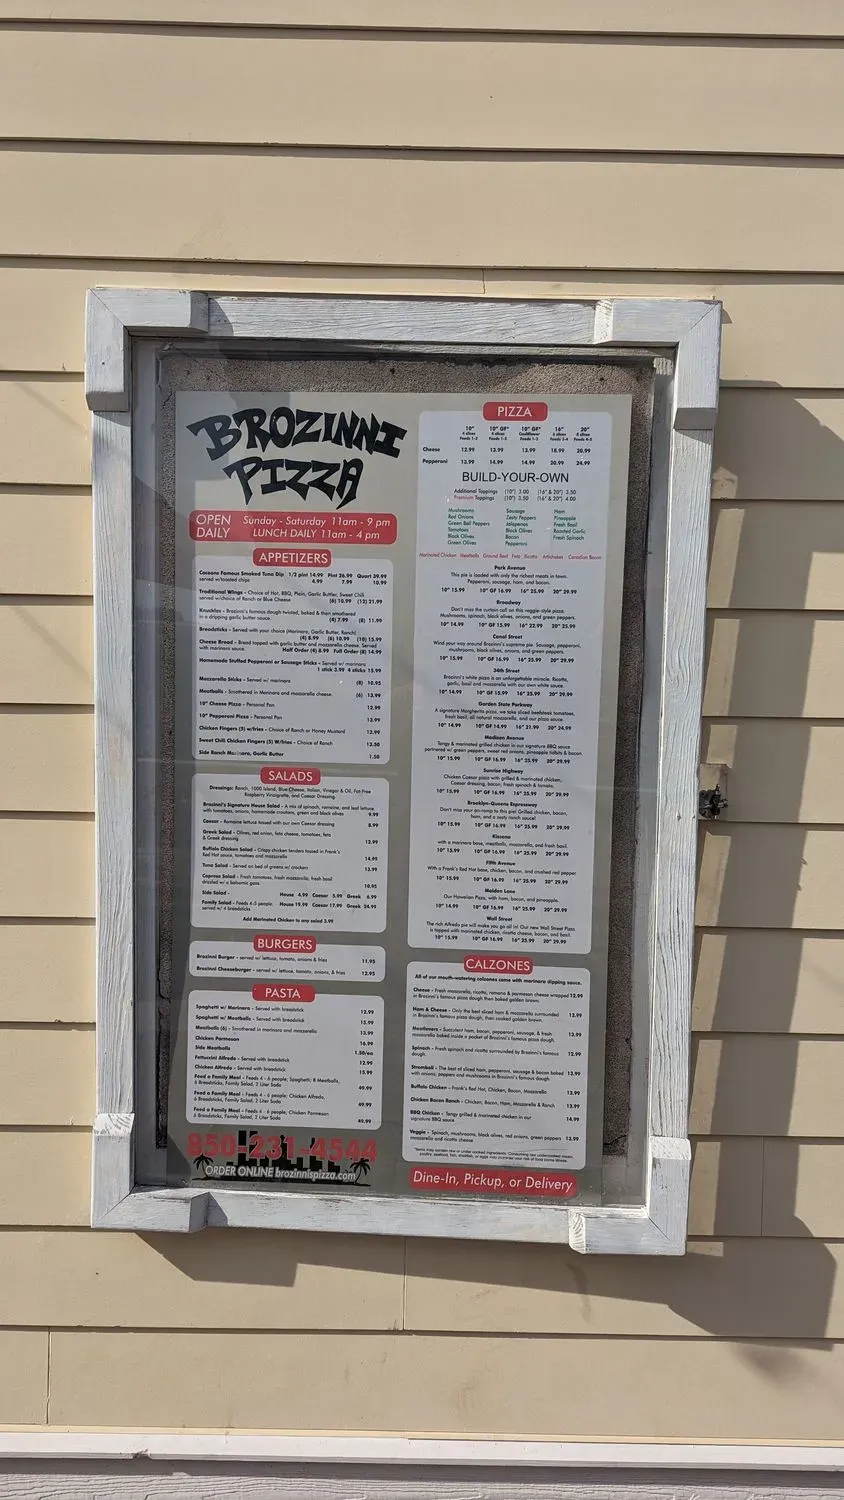 BROZINNI
PIZZA
OPEN DAILY
Sunday - Saturday 11am - 9 pm
LUNCH DAILY 11am - 4 pm
APPETIZERS
Cocoons Famous Smoked Tuna Dip 1/2 pint 14.99 Pint 26.99 Quart 39.99
served w/toasted chips 4.99 7.99 10.99
Traditional Wings - Choice of Hot, BBQ, Plain, Garlic Buttler, Sweet Chili
served w/choice of Ranch or Blue Cheese (6) 10.99 (12) 21.99
Knuckles - Brozinni's famous dough twisted, baked & then smothered
in a dripping garlic butter sauce. (4) 7.99 (8) 11.99
Breadsticks - Served with your choice (Marinara, Garlic Butter, Ranch)
(4) 8.99 (6) 10.99 (10) 15.99
Cheese Bread - Bread topped with garlic butter and mozzarella cheese. Served
with marinara sauce. Half Order (4) 8.99 Full Order (8) 14.99
Homemade Stuffed Pepperoni or Sausage Sticks - Served w/ marinara
1 stick 3.99 4 sticks 15.99
Mozzarella Sticks - Served w/ marinara (8) 10.95
Meatballs - Smothered in Marinara and mozzarella cheese. (6) 13.99
10" Cheese Pizza - Personal Pan 12.99
10" Pepperoni Pizza - Personal Pan 13.99
Chicken Fingers (5) w/fries - Choice of Ranch or Honey Mustard 12.99
Sweet Chili Chicken Fingers (5) W/fries - Choice of Ranch 13.50
Side Ranch Marinara, Garlic Butter 1.50
SALADS
Dressings: Ranch, 1000 Island, Blue Cheese, Italian, Vinegar & Oil, Fat-Free
Raspberry Vinaigrette, and Caesar Dressing.
Brozinni's Signature House Salad - A mix of spinach, romaine, and leaf lettuce
with tomatoes, onions, homemade croutons, green and black olives 9.99
Caesar - Romaine lettuce tossed with our own Caesar dressing 8.99
Greek Salad - Olives, red onion, feta cheese, tomatoes, feta
& Greek dressing 12.99
Buffalo Chicken Salad - Crispy chicken tenders tossed in Frank's
Red Hot sauce, tomatoes and mozzarella 14.95
Tuna Salad - Served on bed of greens w/ crackers 13.99
Caprese Salad - Fresh tomatoes, fresh mozzarella, fresh basil
drizzled w/ a balsamic gaze. 10.95
Side Salad - House 4.99 Caesar 5.99 Greek 6.99
Family Salad - Feeds 4-5 people. House 19.99 Caesar 17.99 Greek 24.99
served w/ 4 breadsticks
Add Marinated Chicken to any salad 3.99
BURGERS
Brozinni Burger - served w/ lettuce, tomato, onions & fries 11.95
Brozinni Cheeseburger - served w/ lettuce, tomato, onions, & fries 12.95
PASTA
Spaghetti w/ Marinara - Served with breadstick 12.99
Spaghetti w/ Meatballs - Served with breadstick 15.99
Meatballs (6) - Smothered in marinara and mozzarella 13.99
Chicken Parmesan 16.99
Side Meatballs 1.50/ea
Fettuccini Alfredo - Served with breadstick 12.99
Chicken Alfredo - Served with breadstick 15.99
Feed a Family Meal - Feeds 4 - 6 people; Spaghetti; 8 Meatballs,
6 Breadsticks, Family Salad, 2 Liter Soda 49.99
Feed a Family Meal - Feeds 4 - 6 people; Chicken Alfredo,
6 Breadsticks, Family Salad, 2 Liter Soda 49.99
Feed a Family Meal - Feeds 4 - 6 people; Chicken Parmesan
6 Breadsticks, Family Salad, 2 Liter Soda 49.99
850-231-4544
ORDER ONLINE brozinnispizza.com
PIZZA
10" 10" GF* 10" GF* 16" 20"
4 slices 4 slices Cauliflower 6 slices 8 slices
Feeds 1-2 Feeds 1-2 Feeds 1-2 Feeds 3-4 Feeds 4-5
Cheese 12.99 13.99 13.99 18.99 20.99
Pepperoni 13.99 14.99 14.99 20.99 24.99
BUILD-YOUR-OWN
Additional Toppings (10") 3.00 (16" & 20") 3.50
Premium Toppings (10") 3.50 (16" & 20") 4.00
Mushrooms Sausage Ham
Red Onions Zesty Peppers Pineapple
Green Bell Peppers Jalapenos Fresh Basil
Tomatoes Black Olives Roasted Garlic
Black Olives Bacon Fresh Spinach
Green Olives Pepperoni
Marinated Chicken Meatballs Ground Beef Feta Ricotta Artichokes Canadian Bacon
Park Avenue
This pie is loaded with only the richest meats in town.
Pepperoni, sausage, ham, and bacon.
10" 15.99 10" GF 16.99 16" 25.99 20" 29.99
Broadway
Don't miss the curtain call on this veggie-style pizza.
Mushrooms, spinach, black olives, onions, and green peppers.
10" 14.99 10" GF 15.99 16" 22.99 20" 25.99
Canal Street
Wind your way around Brozinni's supreme pie. Sausage, pepperoni,
mushrooms, black olives, onions, and green peppers.
10" 15.99 10" GF 16.99 16" 25.99 20" 29.99
34th Street
Brozinni's white pizza is an unforgettable miracle. Ricotta,
garlic, basil and mozzarella with our own white sauce.
10" 14.99 10" GF 15.99 16" 25.99 20" 29.99
Garden State Parkway
A signature Margherita pizza, we take sliced beefsteak tomatoes,
fresh basil, all natural mozzarella, and our pizza sauce.
10" 13.99 10" GF 14.99 16" 21.99 20" 24.99
Madison Avenue
Tangy & marinated grilled chicken in our signature BBQ sauce
partnered w/ green peppers, sweet red onions, pineapple tidbits & bacon.
10" 15.99 10" GF 16.99 16" 25.99 20" 29.99
Sunrise Highway
Chicken Caesar pizza with grilled & marinated chicken,
Caesar dressing, bacon, fresh spinach & tomato.
10" 15.99 10" GF 16.99 16" 25.99 20" 29.99
Brooklyn-Queens Expressway
Don't miss your on-ramp to this pie! Grilled chicken, bacon,
ham, and a zesty ranch sauce!
10" 15.99 10" GF 16.99 16" 25.99 20" 29.99
Kissena
with a marinara base, meatballs, mozzarella, and fresh basil.
10" 15.99 10" GF 16.99 16" 25.99 20" 29.99
Fifth Avenue
With a Frank's Red Hot base, chicken, bacon, and crushed red pepper
10" 15.99 10" GF 16.99 16" 25.99 20" 29.99
Maiden Lane
Our Hawaiian Pizza, with ham, bacon, and pineapple.
10" 14.99 10" GF 16.99 16" 25.99 20" 29.99
Wall Street
The rich Alfredo pie will make you go all in! Our new Wall Street Pizza
is topped with marinated chicken, ricotta cheese, bacon, and basil.
10" 15.99 10" GF 16.99 16" 25.99 20" 29.99
CALZONES
All of our mouth-watering calzones come with marinara dipping sauce.
Cheese - Fresh mozzarella, ricotta, romano & parmesan cheese wrapped 12.99
in Brozinni's famous pizza dough then baked golden brown.
Ham & Cheese - Only the best sliced ham & mozzarella surrounded 13.99
in Brozinni's famous pizza dough, then cooked golden brown.
Meatlovers - Succulent ham, bacon, pepperoni, sausage, & fresh 13.99
mozzarella baked inside a pocket of Brozinni's famous pizza dough.
Spinach - Fresh spinach and ricotta surrounded by Brozinni's famous 12.99
dough.
Stromboli - The best of sliced ham, pepperoni, sausage & bacon baked 13.99
with onions, peppers and mushrooms in Brozinni's famous dough
Buffalo Chicken - Frank's Red Hot, Chicken, Bacon, Mozzarella 13.99
Chicken Bacon Ranch - Chicken, Bacon, Ham, Mozzarella & Ranch 13.99
BBQ Chicken - Tangy grilled & marinated chicken in our 14.99
signature BBQ sauce
Veggie - Spinach, mushrooms, black olives, red onions, green peppers 13.99
mozzarella and ricotta cheese
*Items may contain raw or under cooked ingredients. Consuming raw undercooked meats,
poultry, seafood, fish, shellfish, or eggs may increase your risk of food borne illness.
Dine-In, Pickup, or Delivery